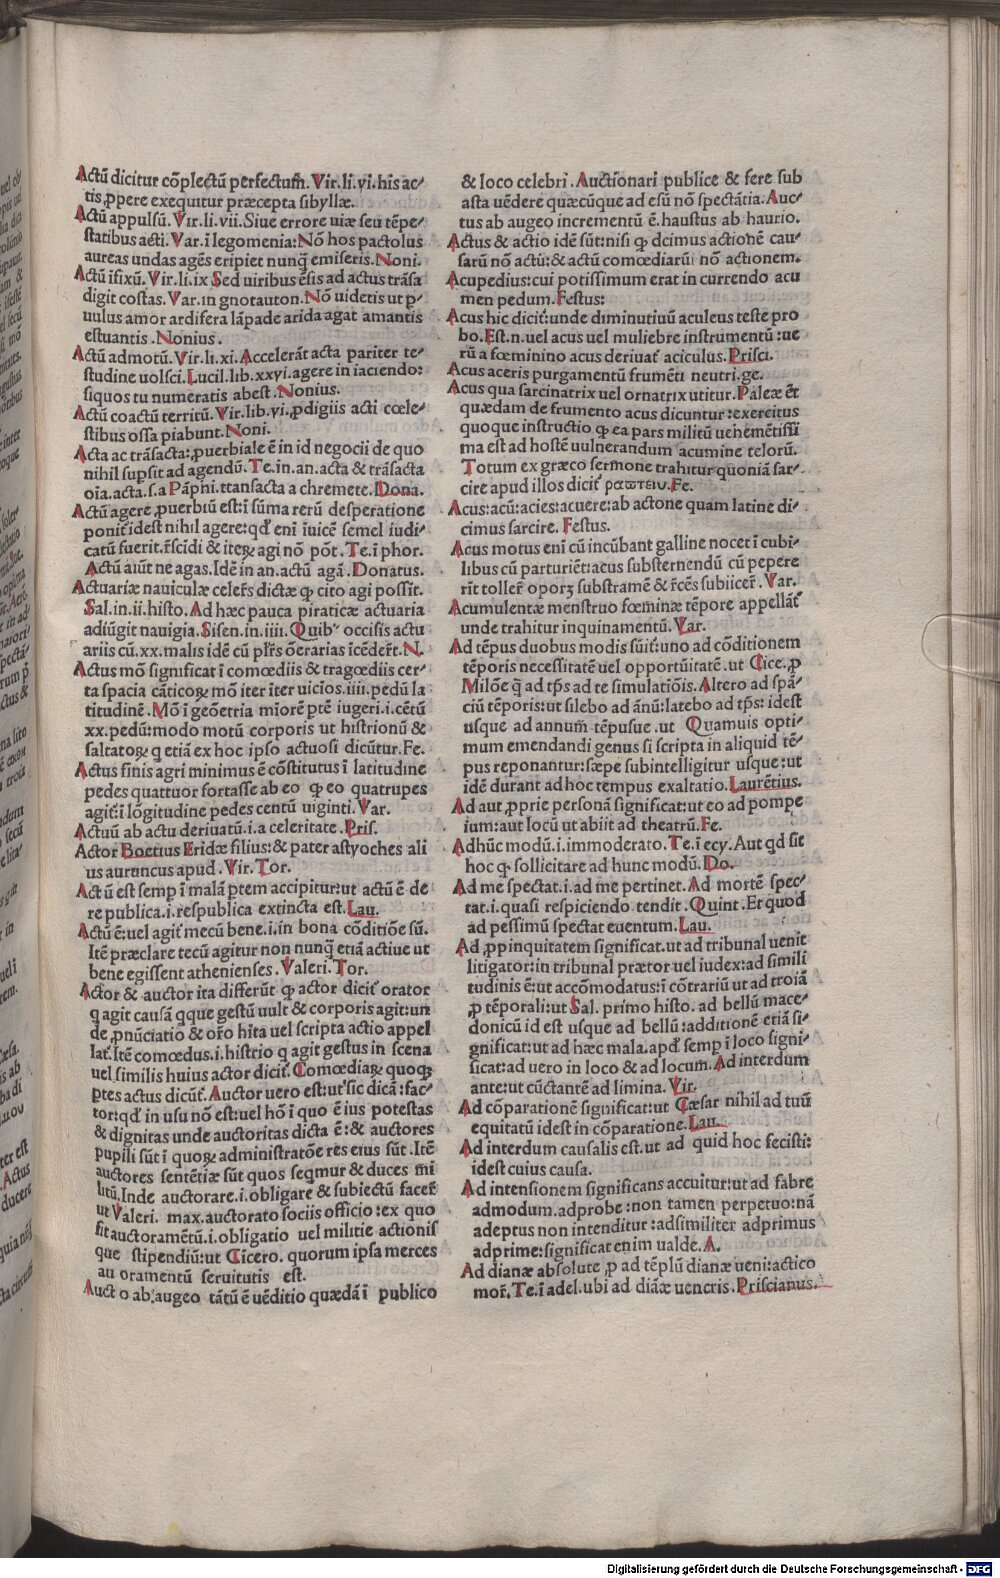 Actũ dicitur cõplectũ perfectum̃. Vir. li. vi. his ac⸗
tis ꝓpere exequitur præcepta sibyllæ.
Actũ appulsũ. Vir. li. vii. Siue errore uiæ seu tẽpe⸗
statibus acti. Var. ĩ legomenia: Nõ hos pactolus
aureas undas agẽs eripiet nunq̃ emiseris. Noni.
Actũ ĩfixũ. Vir. li. ix Sed uiribus ẽsis ad actus trãsa
digit costas. Var. in gnotauton. Nõ uidetis ut p̱
uulus amor ardifera lãpade arida agat amantis
estuantis. Nonius.
Actũ admotũ. Vir. li. xi. Accelerãt acta pariter te⸗
studine uolsci. Lucil. lib. xxvi. agere in iaciendo:
siquos tu numeratis abest. Nonius.
Actũ coactũ territũ. Vir. lib. vi. ꝓdigiis acti cœle⸗
stibus ossa piabunt. Noni.
Acta ac trãsacta: ꝓuerbiale ẽ in id negocii de quo
nihil supsit ad agendũ. Te. in. an. acta & trãsacta
oīa. acta. s. a Pãphi. ttansacta a chremete. Dona.
Actũ agere ꝓuerbiũ est: ĩ sũma rerũ desperatione
ponit̃ idest nihil agere: qđ enĩ iuicẽ semel iudi⸗
catũ fuerit. r̃scĩdi & iteꝝ agi nõ põt. Te. ĩ phor.
Actũ aiũt ne agas. Idẽ in an. actũ agã. Donatus.
Actuariæ nauiculæ celer̃s dictæ ꝙ cito agi possĩt.
Sal. in. ii. histo. Ad hæc pauca piraticæ actuaria
adiũgit nauigia. Sisen. in. iiii. Quib⁹ occisis actu
ariis cũ. xx. malis idẽ cũ pl̃rs õerarias ĩcẽder̃t. N.
Actus mõ significat ĩ comœdiis & tragœdiis cer⸗
ta spacia cãticoꝝ mõ iter iter uicios. iiii. pedũ la
titudinẽ. Mõ ĩ geõetria miorẽ ptẽ iugeri. i. cẽtũ
xx. pedũ: modo motũ corporis ut histrionũ &
saltatoꝝ q etiã ex hoc ipso actuosi dicũtur. Fe.
Actus finis agri minimus ẽ cõstitutus ĩ latitudine
pedes quattuor fortasse ab eo ꝙ eo quatrupes
agit̃: ĩ lõgitudine pedes centũ uiginti. Var.
Actuũ ab actu deriuatũ. i. a celeritate. Pris.
Actor Boetius Eridæ filius: & pater astyoches ali
us auruncus apud. Vir. Tor.
Actũ est semp ĩ malã ptem accipitur: ut actũ ẽ de
re publica. i. respublica extincta est. Lau.
Actũ ẽ: uel agit̃ mecũ bene. i. in bona cõditiõe sũ.
Itẽ præclare tecũ agitur non nunq̃ etiã actiue ut
bene egissent athenienses. Valeri. Tor.
Actor & auctor ita differũt ꝙ actor dicit̃ orator
q agit causã qque gestũ uult & corporis agit: un
de ꝓnũciatio & or̃o hĩta uel scripta actio appel
lat̃. Itẽ comœdus. i. histrio q agit gestus in scena
uel similis huius actor dicit̃. Comœdiaꝝ quoqꝫ
ptes actus dicũt̃. Auctor uero est: ut sic dicã: fac⸗
tor: qđ in usu nõ est: uel hõ ĩ quo ẽ ius potestas
& dignitas unde auctoritas dicta ẽ: & auctores
pupili sũt ĩ quoꝝ administratõe res eius sũt. Itẽ
auctores sentẽtiæ sũt quos seqmur & duces mĩ
litũ. Inde auctorare. i. obligare & subiectũ facer̃
ut Valeri. max. auctorato sociis officio: ex quo
fit auctoramẽtũ. i. obligatio uel militie actionis
que stipendiũ: ut Cicero. quorum ipsa merces
au oramentũ seruitutis est.
Auct o ab: augeo tãtũ ẽ uẽditio quædã ĩ publico
& loco celebri. Auctionari publice & fere sub
asta uẽdere quæcũque ad esũ nõ spectãtia. Auc⸗
tus ab augeo incrementũ ẽ. haustus ab haurio.
Actus & actio idẽ sũt: nisi ꝙ dcimus actionẽ cau⸗
sarũ nõ actũ: & actũ comœdiarũ nõ actionem.
Acupedius: cui potissimum erat in currendo acu
men pedum. Festus:
Acus hic dicit̃: unde diminutiuũ aculeus teste pro
bo. Est. n. uel acus uel muliebre instrumentũ: ue
rũ a fœminino acus deriuat̃ aciculus. Prisci.
Acus aceris purgamentũ frumẽti neutri. ge.
Acus qua sarcinatrix uel ornatrix utitur. Paleæ ẽt
quædam de frumento acus dicuntur: exercitus
quoque instructio ꝙ ea pars militũ uehemẽtissi
ma est ad hostẽ uulnerandum acumine telorũ.
Totum ex græco sermone trahitur quoniã sar⸗
cire apud illos dicit̃ ραωτειν. Fe.
Acus: acũ: acies: acuere: ab actone quam latine di⸗
cimus sarcire. Festus.
Acus motus enĩ cũ incũbant galline nocet ĩ cubi⸗
libus cũ parturiẽt: acus substernendũ cũ pepere
rĩt toller̃ oporꝫ substramẽ & r̃cẽs subiicer̃. Var.
Acumulentæ menstruo fœminæ tẽpore appellãt̃
unde trahitur inquinamentũ. Var.
Ad tẽpus duobus modis sũit: uno ad cõditionem
tẽporis necessitatẽ uel opportũitatẽ. ut Cice. ꝓ
Milõe q̃ ad tp̃s ad te simulatiõis. Altero ad spã⸗
ciũ tẽporis: ut silebo ad ãnũ: latebo ad tp̃s: idest
usque ad annum̃ tẽpusue. ut Quamuis opti⸗
mum emendandi genus si scripta in aliquid tẽ⸗
pus reponantur: sæpe subintelligitur usque: ut
idẽ durant ad hoc tempus exaltatio. Laurẽtius.
Ad aut ꝓprie personã significat: ut eo ad pompe
ium: aut locũ ut abiit ad theatrũ. Fe.
Adhũc modũ. i. immoderato. Te. ĩ ecy. Aut qđ sit
hoc ꝙ sollicitare ad hunc modũ. Do.
Ad me spectat. i. ad me pertinet. Ad mortẽ spec⸗
tat. i. quasi respiciendo tendit. Quint. Et quod
ad pessimũ spectat euentum. Lau.
Ad ꝓpinquitatem significat. ut ad tribunal uenit
litigator: in tribunal prætor uel iudex: ad simili
tudinis ẽ: ut accõmodatus: ĩ cõtrariũ ut ad troiã
ꝓ tẽporali: ut Sal. primo histo. ad bellũ mace⸗
donicũ id est usque ad bellũ: additionẽ etiã si⸗
gnificat: ut ad hæc mala. apđ semp ĩ loco signi⸗
ficat: ad uero in loco & ad locum. Ad interdum
ante: ut cũctantẽ ad limina. Vir.
Ad cõparationẽ significat: ut Cæsar nihil ad tuũ
equitatũ idest in cõparatione. Lau.
Ad interdum causalis est. ut ad quid hoc fecisti:
idest cuius causa.
Ad intensionem significans accuitur: ut ad fabre
admodum. adprobe: non tamen perpetuo: nã
adeptus non intenditur: adsimiliter adprimus
adprime: significat enim ualde. A.
Ad dianæ absolute ꝓ ad tẽplũ dianæ ueni: actico
mor̃. Te. ĩ adel. ubi ad diãæ uencris. Priscianus.
Digitalisierung gefördert durch die Deutsche Forschungsgemeinschaft - DFG